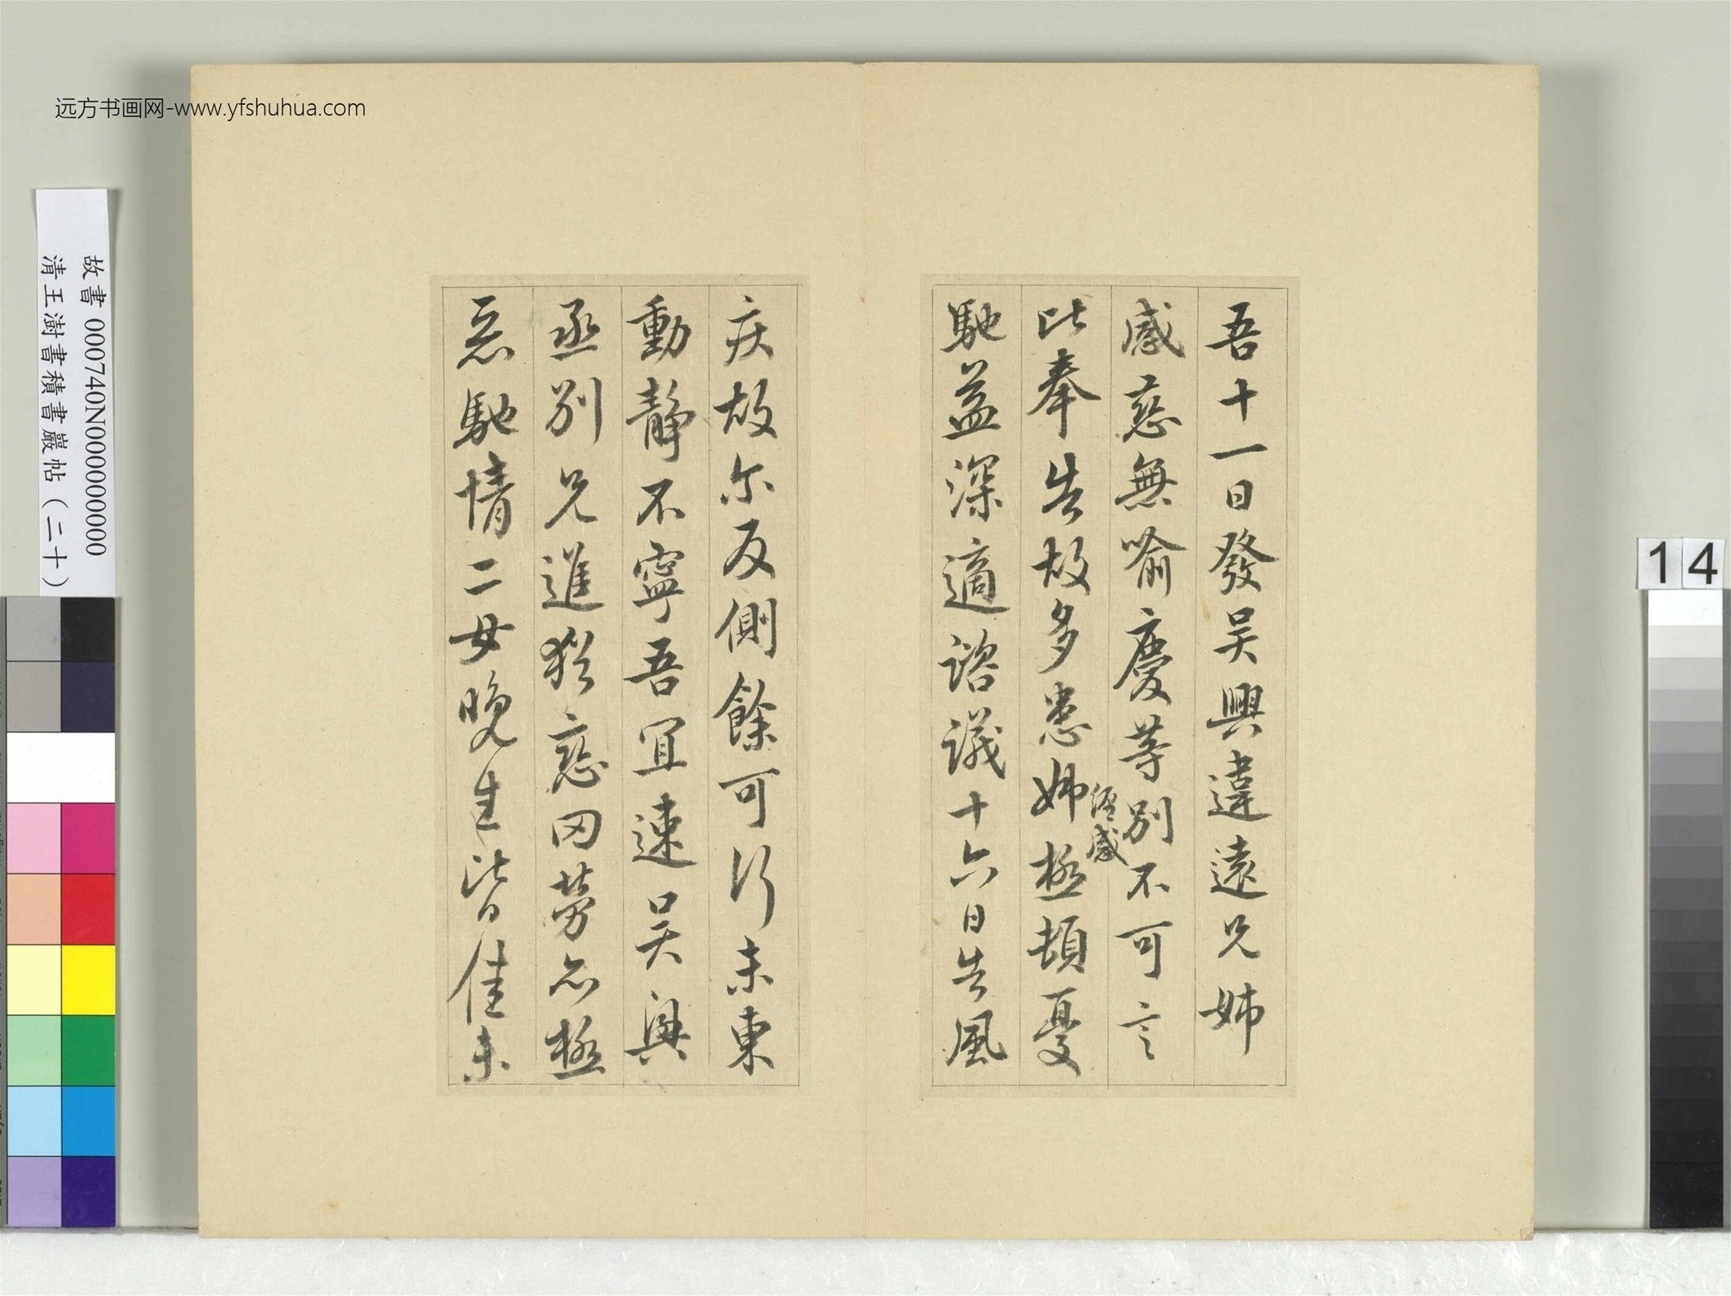 远方书画网-www.yfshuhua.com
故書 000740N000000000
清王澍書積書巖帖（二十）
14
吾十一日發吴興違遠兄姊
感戀無喻慶等別不可言
比奉告故多患姊經感極頓憂
馳益深適諮議十六日告風
疾故尔反側餘可行未東
動靜不寧吾宜速吴興
丞別兄進猶戀罔勞亦極
惡馳情二女晚生皆佳未